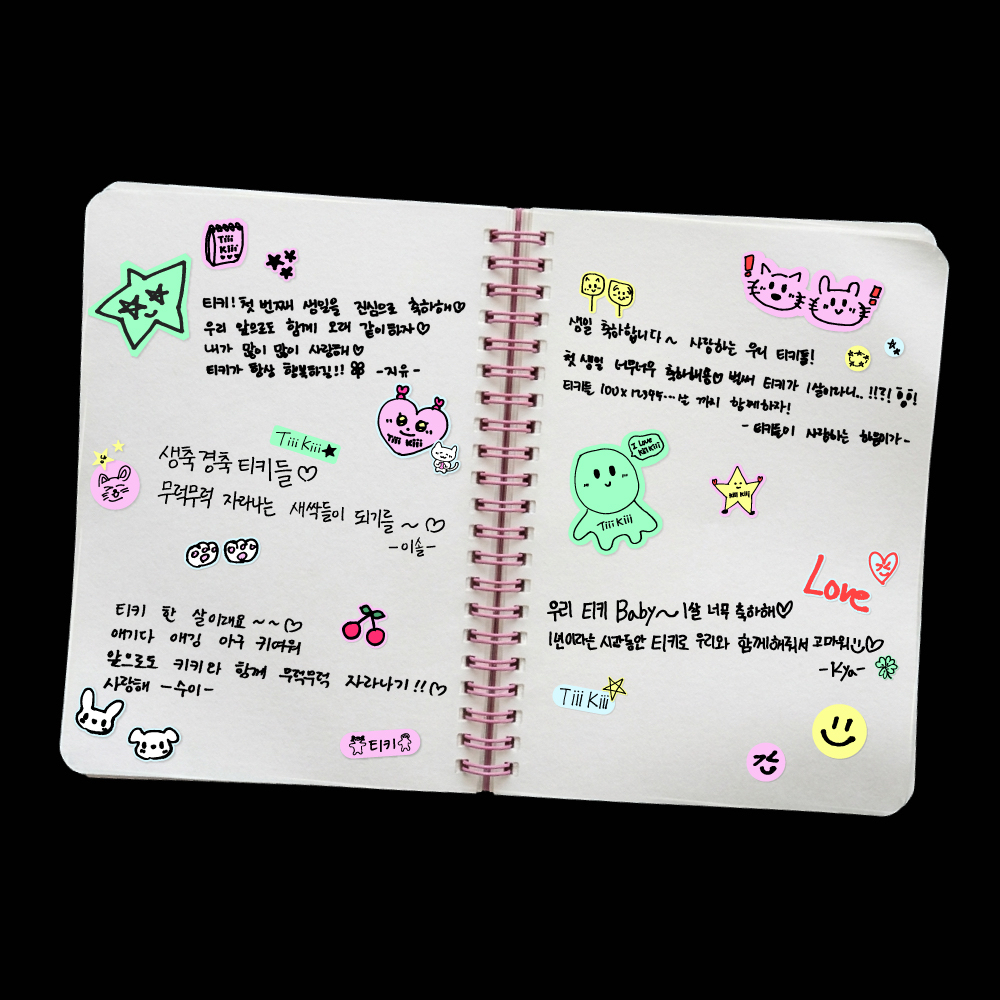 Tiii
Kiii
티키! 첫 번째 생일을 진심으로 축하해♡
우리 앞으로도 함께 오래 같이하자♡
내가 많이 많이 사랑해♡
티키가 항상 행복하길!! -지유-
Tiii Kiii
Tiii Kiii★
생축경축 티키들♡
무럭무럭 자라나는 새싹들이 되기를 ~ ♡
-이솔-
티키 한 살이래요~~♡
애기다 애깅 아구 키여워
앞으로도 키키라 함께 무럭무럭 자라나기!!♡
사랑해 -수이-
티키
생일 축하합니다~ 사랑하는 우리 티키들!
첫 생일 너무너무 축하해용♡ 벌써 티키가 1살이라니..!!?!
티키들 100x12395...살 까지 함께하자!
-티키들이 사랑하는 하음이가-
I Love
Kiii Kiii
Tiii Kiii
Kiii Kiii
Love
우리 티키 Baby~ 1살 너무 축하해♡
1년이라는 시간동안 티키로 우리와 함께해줘서 고마워♡
-Kya-
Tiii Kiii